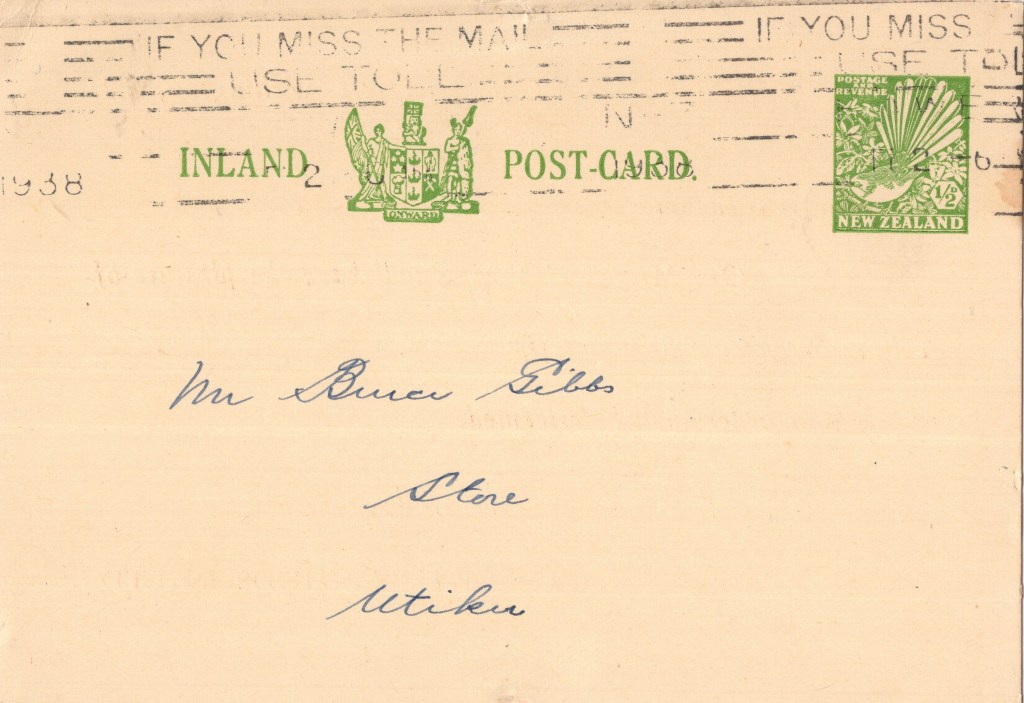 IF YOU MISS THE MAIL
USE TOLL
IF YOU MISS
USE TOL
POSTAGE
AND
REVENUE
INLAND POST-CARD.
ONWARD
1938
2
1938
2
½D
NEW ZEALAND
Mr Bruce Gibbs
Store
Utiku